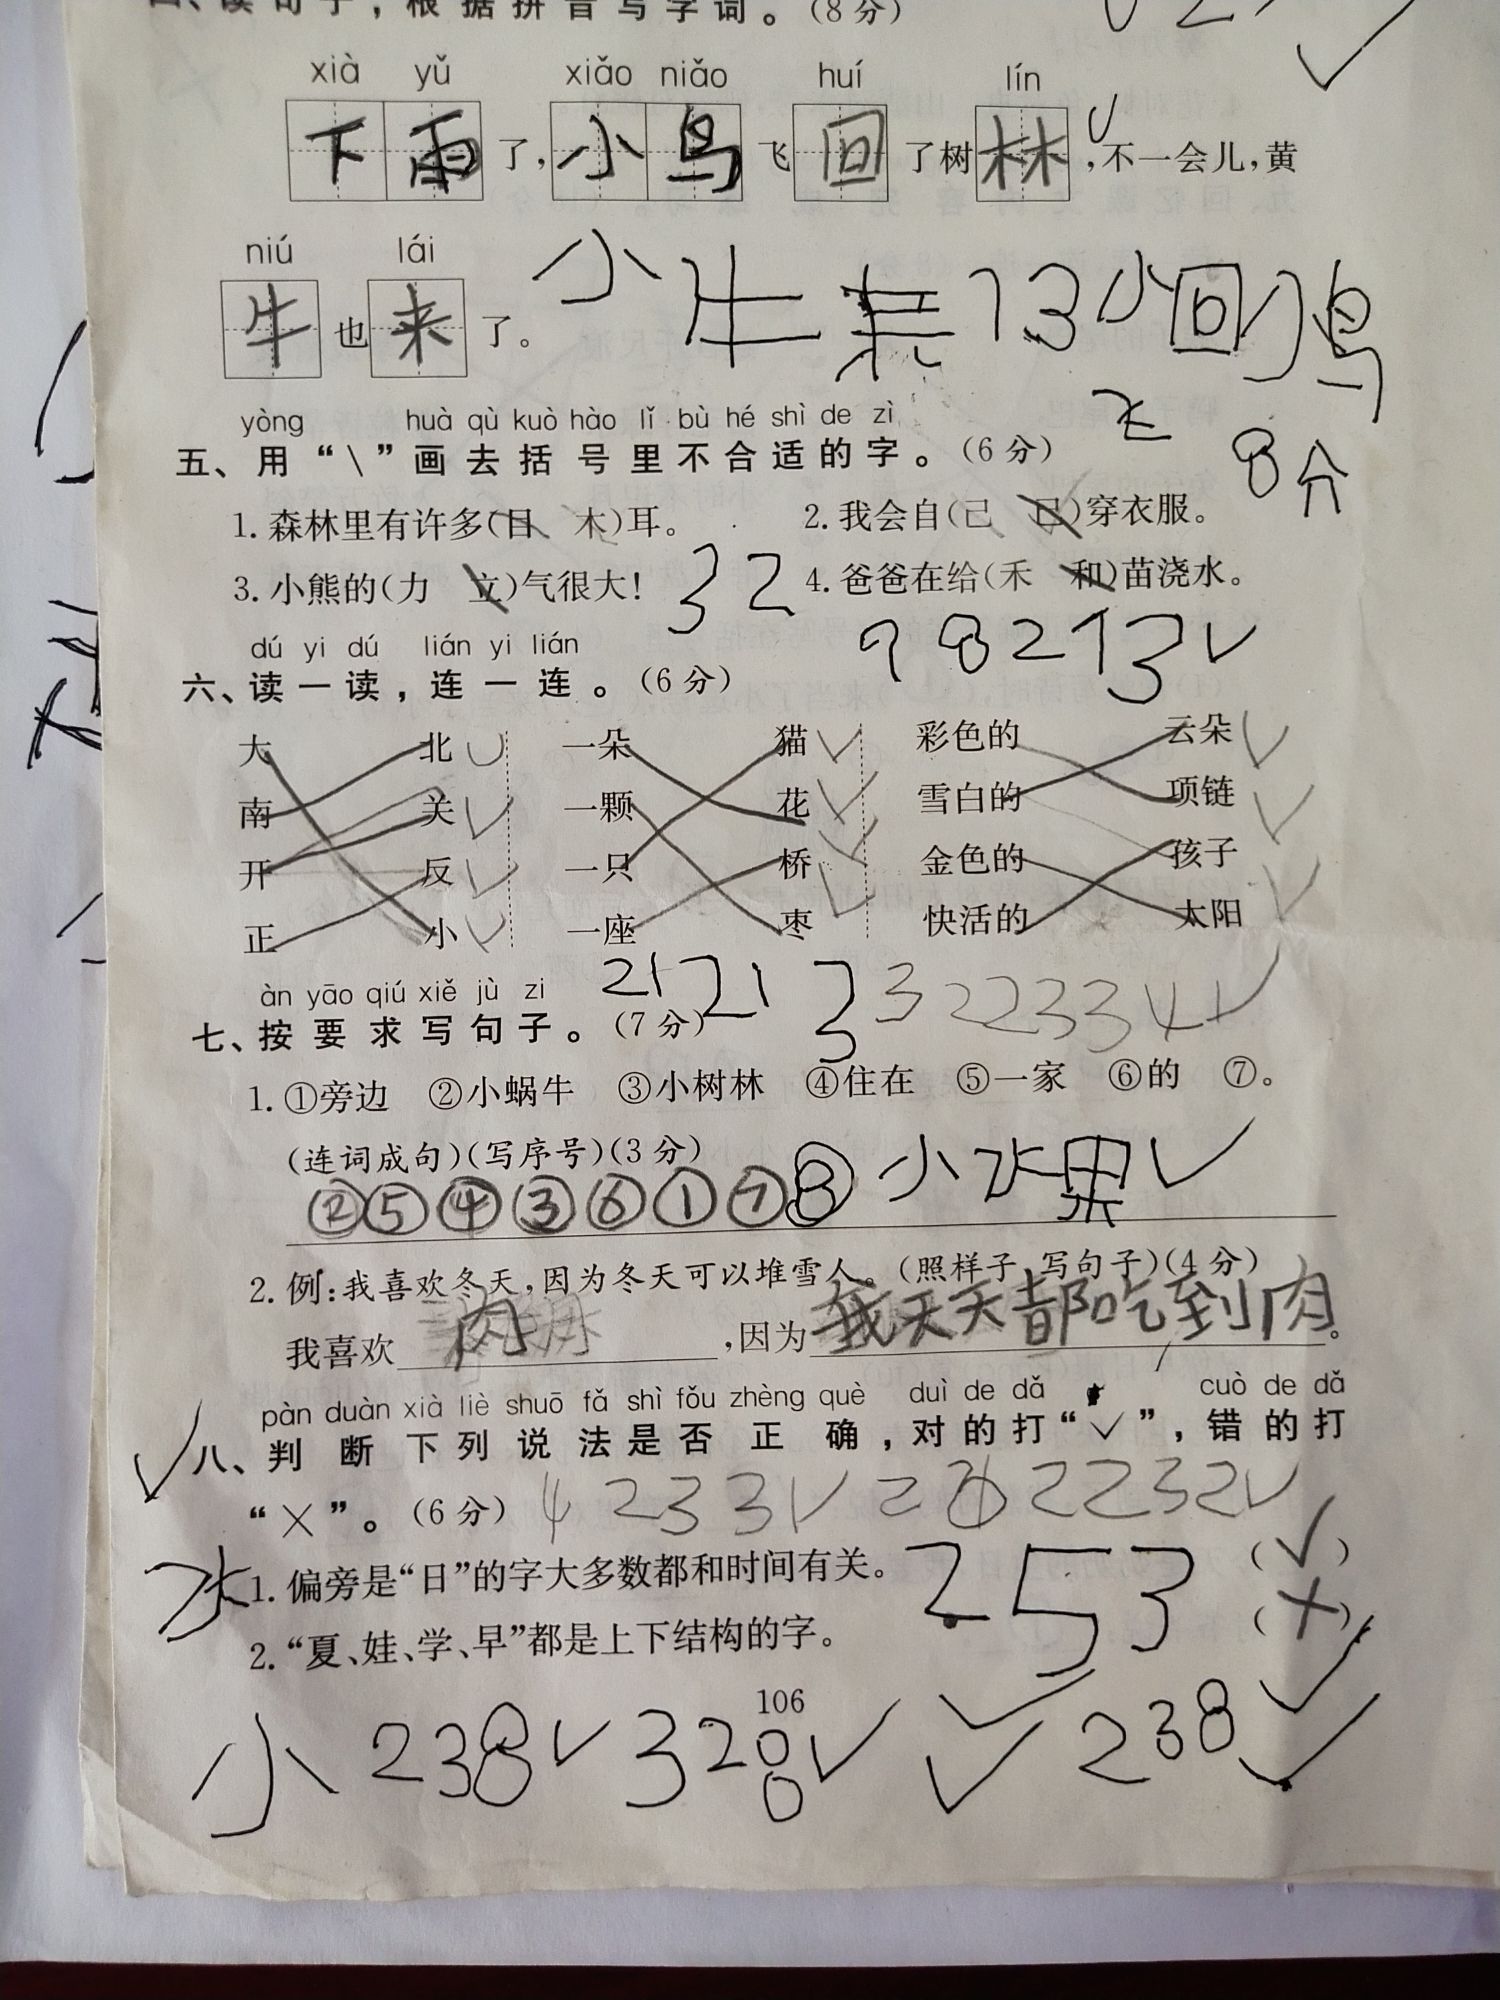 四、读句子，根据拼音写字词。(8分)
xià yǔ xiǎo niǎo huí lín
下雨了，小鸟飞回了树林，不一会儿，黄
niú lái
牛也来了。
小牛 13小回鸟
飞
8分
yòng huà qù kuò hào lǐ bù hé shì de zì
五、用“\”画去括号里不合适的字。(6分)
1. 森林里有许多(目 木)耳。 2. 我会自(己 已)穿衣服。
3. 小熊的(力 立)气很大! 32 4. 爸爸在给(禾 和)苗浇水。
98213✓
dú yi dú lián yi lián
六、读一读，连一连。(6分)
大 北 一朵 猫 彩色的 云朵
南 关 一颗 花 雪白的 项链
开 反 一只 桥 金色的 孩子
正 小 一座 枣 快活的 太阳
àn yāo qiú xiě jù zi
七、按要求写句子。(7分)
21213322334✓
1. ①旁边 ②小蜗牛 ③小树林 ④住在 ⑤一家 ⑥的 ⑦。
(连词成句)(写序号)(3分)
②⑤④③⑥①⑦⑧ 小水果✓
2. 例:我喜欢冬天，因为冬天可以堆雪人。(照样子 写句子)(4分)
我喜欢肉，因为我天天都吃到肉。
pàn duàn xià liè shuō fǎ shì fǒu zhèng què duì de dǎ cuò de dǎ
八、判断下列说法是否正确，对的打“✓”，错的打
“×”。(6分) 4233✓ 22232✓
水
1. 偏旁是“日”的字大多数都和时间有关。 253 (✓)
2. “夏、娃、学、早”都是上下结构的字。 (×)
106
小 238✓ 328✓ ✓ ✓ 238✓